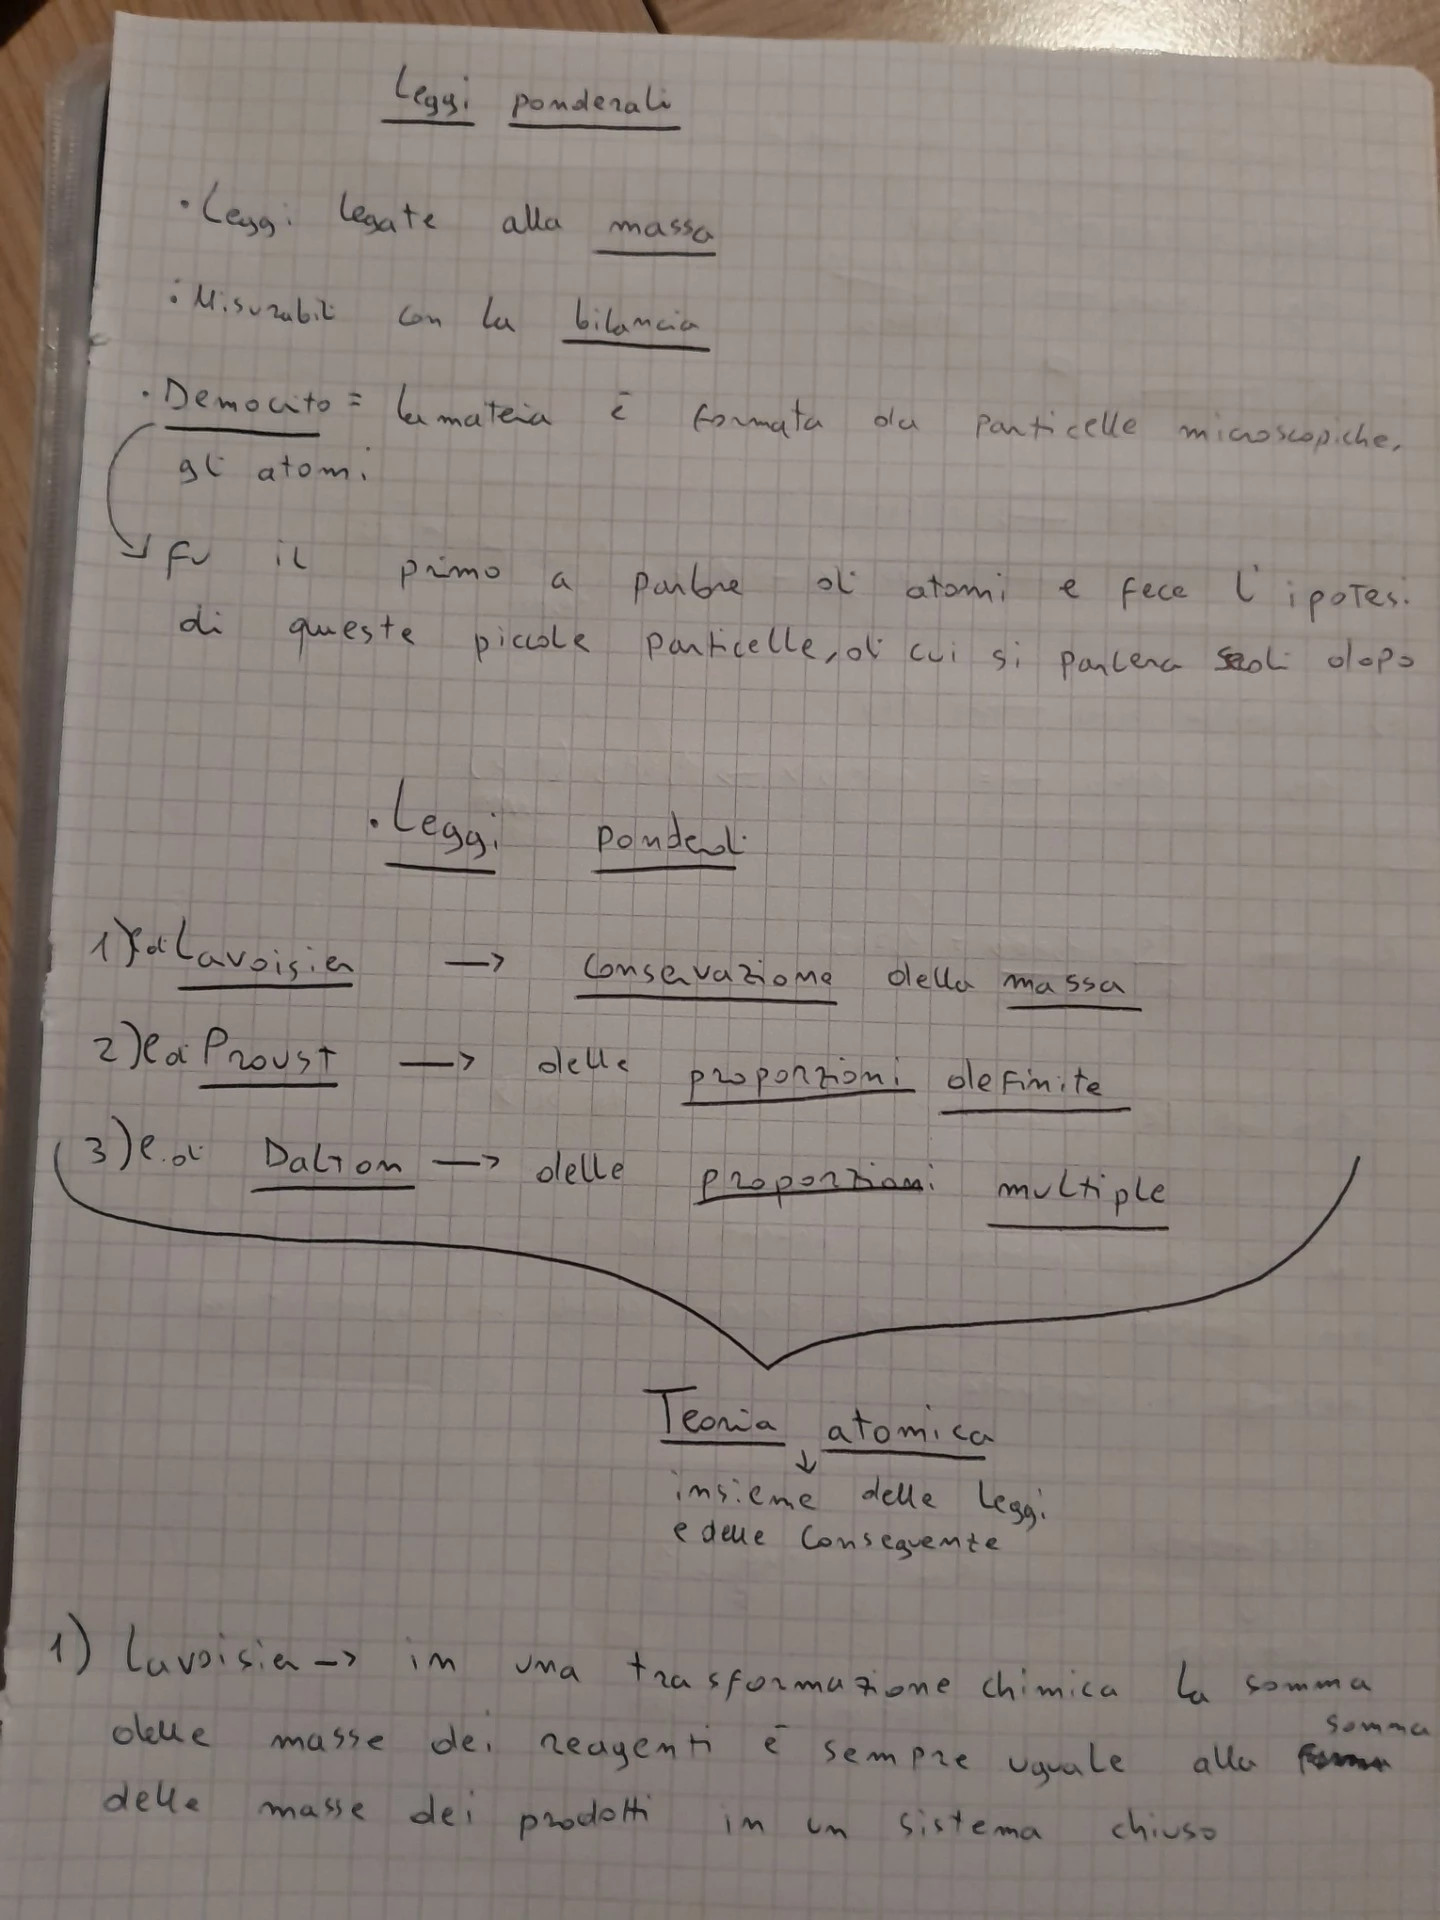 Leggi ponderali
• Leggi legate alla massa
• Misurabili con la bilancia
• Democrito = la materia è formata da particelle microscopiche,
gli atomi
fu il primo a parlare di atomi e fece l'ipotesi
di queste piccole particelle, di cui si parlera dopo
• Leggi ponderali
1) l di Lavoisier → conservazione della massa
2) l di Proust → delle proporzioni definite
3) l. di Dalton → delle proporzioni multiple
Teoria atomica
↓
insieme delle leggi
e delle conseguente
1) Lavoisier → in una trasformazione chimica la somma
delle masse dei reagenti è sempre uguale alla somma
delle masse dei prodotti in un sistema chiuso